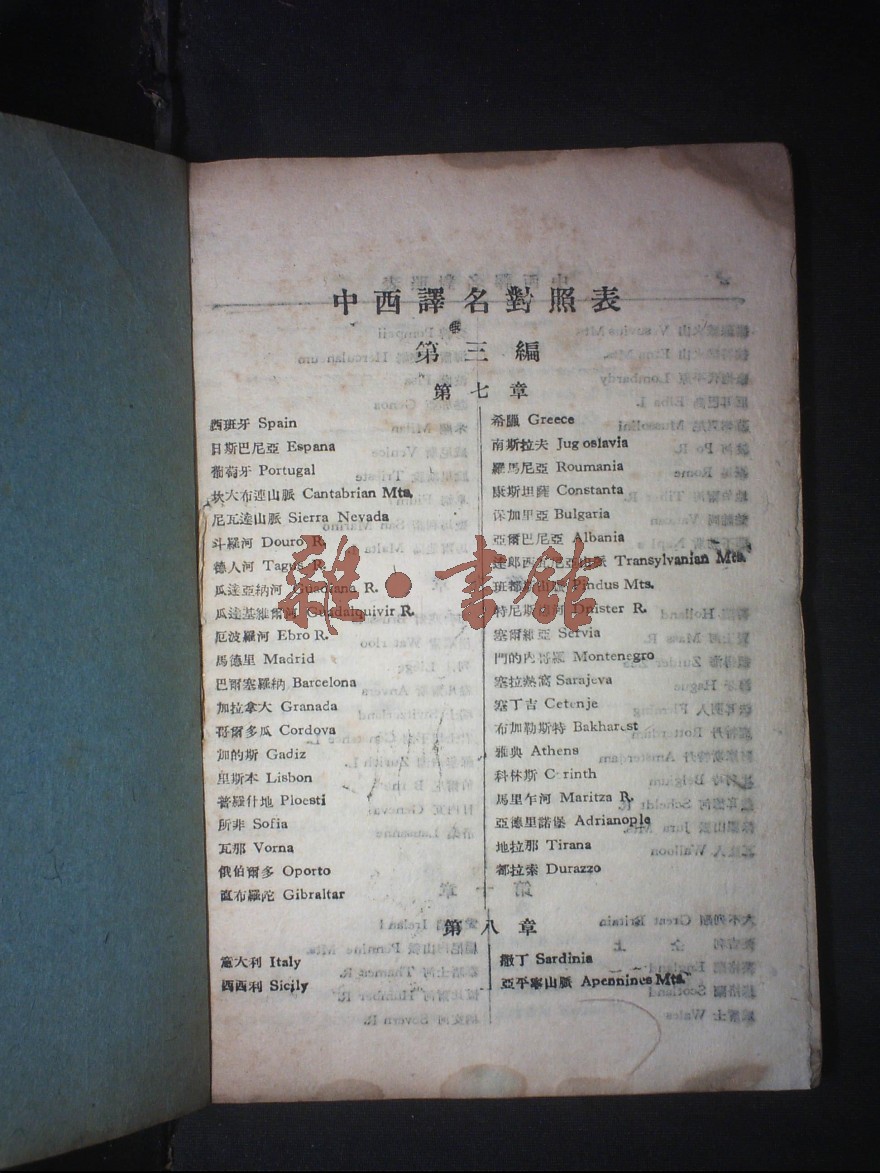 中西譯名對照表
第三編
第七章
西班牙 Spain
日斯巴尼亞 Espana
葡萄牙 Portugal
坎大布連山脈 Cantabrian Mts.
尼瓦達山脈 Sierra Nevada
斗羅河 Douro R.
德人河 Tagus R.
瓜達亞納河 Guadiana R.
瓜達基維爾河 Guadalquivir R.
厄波羅河 Ebro R.
馬德里 Madrid
巴爾塞羅納 Barcelona
加拉拿大 Granada
哥爾多瓜 Cordova
加的斯 Gadiz
里斯本 Lisbon
普羅什地 Ploesti
所非 Sofia
瓦那 Vorna
俄伯爾多 Oporto
直布羅陀 Gibraltar
希臘 Greece
南斯拉夫 Jugoslavia
羅馬尼亞 Roumania
康斯坦薩 Constanta
保加里亞 Bulgaria
亞爾巴尼亞 Albania
達郎西瓦尼亞山脈 Transylvanian Mts.
班都斯山脈 Pindus Mts.
特尼斯德河 Dnister R.
塞爾維亞 Servia
門的內哥羅 Montenegro
塞拉熱窩 Sarajeva
塞丁吉 Cetenje
布加勒斯特 Bakharest
雅典 Athens
科林斯 Corinth
馬里乍河 Maritza R.
亞德里諾堡 Adrianople
地拉那 Tirana
都拉索 Durazzo
第八章
意大利 Italy
西西利 Sicily
撒丁 Sardinia
亞平寧山脈 Apennines Mts.
雜·書館